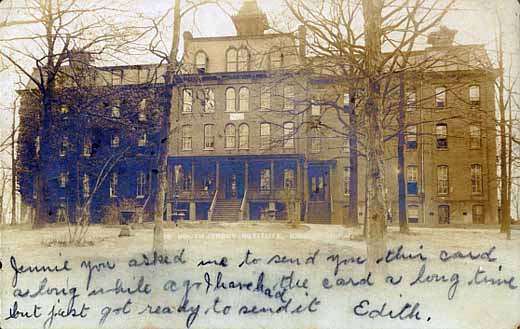 INSTITUTE,
Jennie you asked me to send you this card
a long while ago I have had the card a long time
but just got ready to send it Edith.